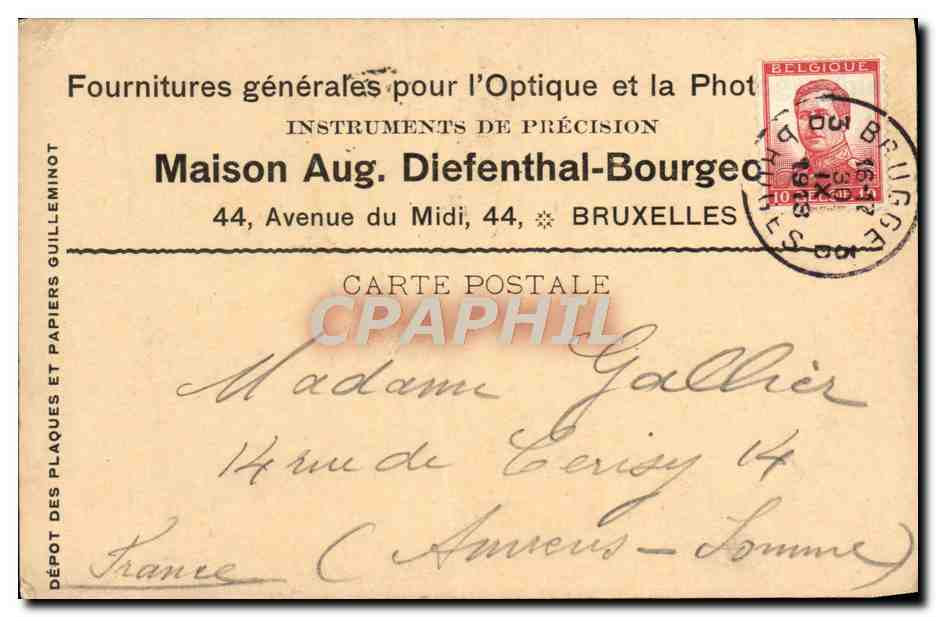 Fournitures générales pour l'Optique et la Phot
INSTRUMENTS DE PRÉCISION
Maison Aug. Diefenthal-Bourgeo
44, Avenue du Midi, 44, ☼ BRUXELLES
CARTE POSTALE
CPAPHIL
Madame Gallier
14 rue de Cerisy 14
France (Amiens - Somme)
DÉPOT DES PLAQUES ET PAPIERS GUILLEMINOT
BELGIQUE
10 10
BRUGGE
3D
16-17
30
IX
1913
3D
BRUGES